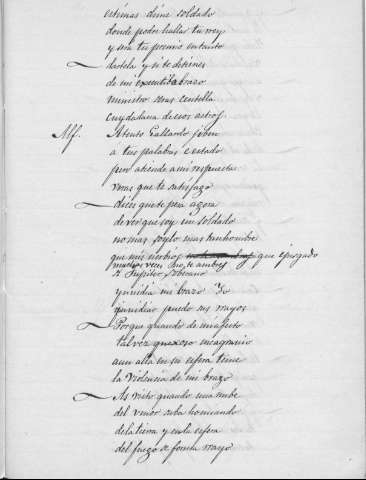 estimas dime soldado
donde podre hallar tu rey
y sera tu premio en tanto
dartela y si te detienes
de mi executibo brazo
ministro seras centella
cuydadana de esos astros
Alf. Atento Gallardo joben
a tus palabras e estado
pero atiende a mi respuesta
veras que te satisfago
dices que te pesa agora
de ver que soy un soldado
no mas soylo mas tan hombre
que mis nombres que e jusgado
muchas veces me
Jupiter soberano
ynvidia mi brazo Yo
ynvidiar puedo sus rayos
Porque quando de mi agusto
tal vez quexoso me agravio
aun alla en su esfera teme
la violencia de mi brazo
As visto quando una nube
del vapor suba humeando
de la tierra y en la esfera
del fuego se forma rayo